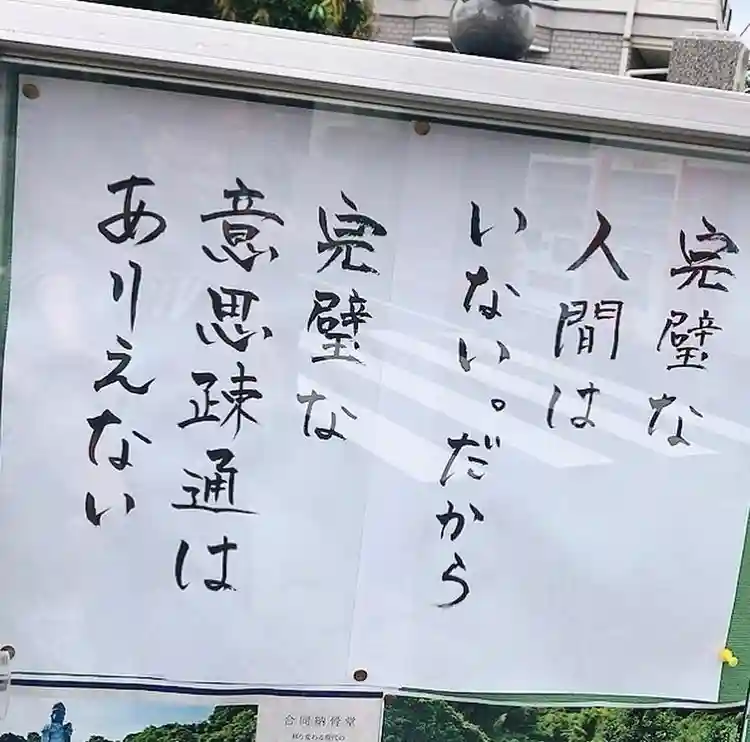 完璧な
人間は
いない。だから
完璧な
意思疎通は
ありえない
合同納骨堂
移り変わる時代の